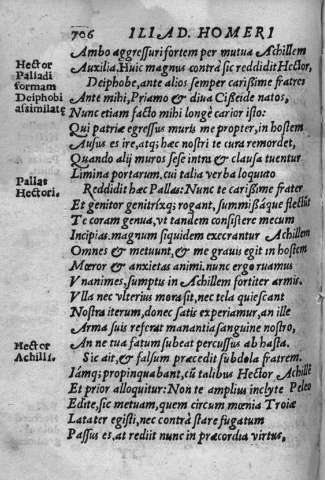 706 ILIAD. HOMERI
Ambo aggreſſuri fortem per mutua Achillem
Hector
Palladi
formam
Deiphobi
aſsimilatę
Auxilia. Huic magnus contrà ſic reddidit Hector,
Deiphobe, ante alios ſemper cariſsime fratres
Ante mihi, Priamo & diua Ciſſeide natos,
Nunc etiam facto mihi longè carior iſto:
Qui patriæ egreſſus muris me propter, in hoſtem
Auſus es ire, atq; hæc noſtri te cura remordet,
Quando alij muros ſeſe intra & clauſa tuentur
Limina portarum. cui talia verba loquuto
Pallas
Hectori.
Reddidit hæc Pallas: Nunc te cariſsime frater
Et genitor genitrixq; rogant, ſummiſſáque flectūt
Te coram genua, vt tandem conſiſtere mecum
Incipias. magnum ſiquidem execrantur Achillem
Omnes & metuunt, & me grauis egit in hoſtem
Mœror & anxietas animi. nunc ergo ruamus
Vnanimes, ſumptis in Achillem fortiter armis.
Vlla nec vlterius mora ſit, nec tela quieſcant
Noſtra iterum, donec ſatis experiamur, an ille
Arma ſuis referat manantia ſanguine noſtro,
An ne tua fatum ſubeat percuſſus ab haſta.
Hector
Achilli.
Sic ait, & falſum præcedit ſubdola fratrem.
Iámq; propinquabant, cū talibus Hector Achillē
Et prior alloquitur: Non te amplius inclyte Peleo
Edite, ſic metuam, quem circum mœnia Troiæ
Latater egiſti, nec contrà ſtare fugatum
Paſſus es, at rediit nunc in præcordia virtus,